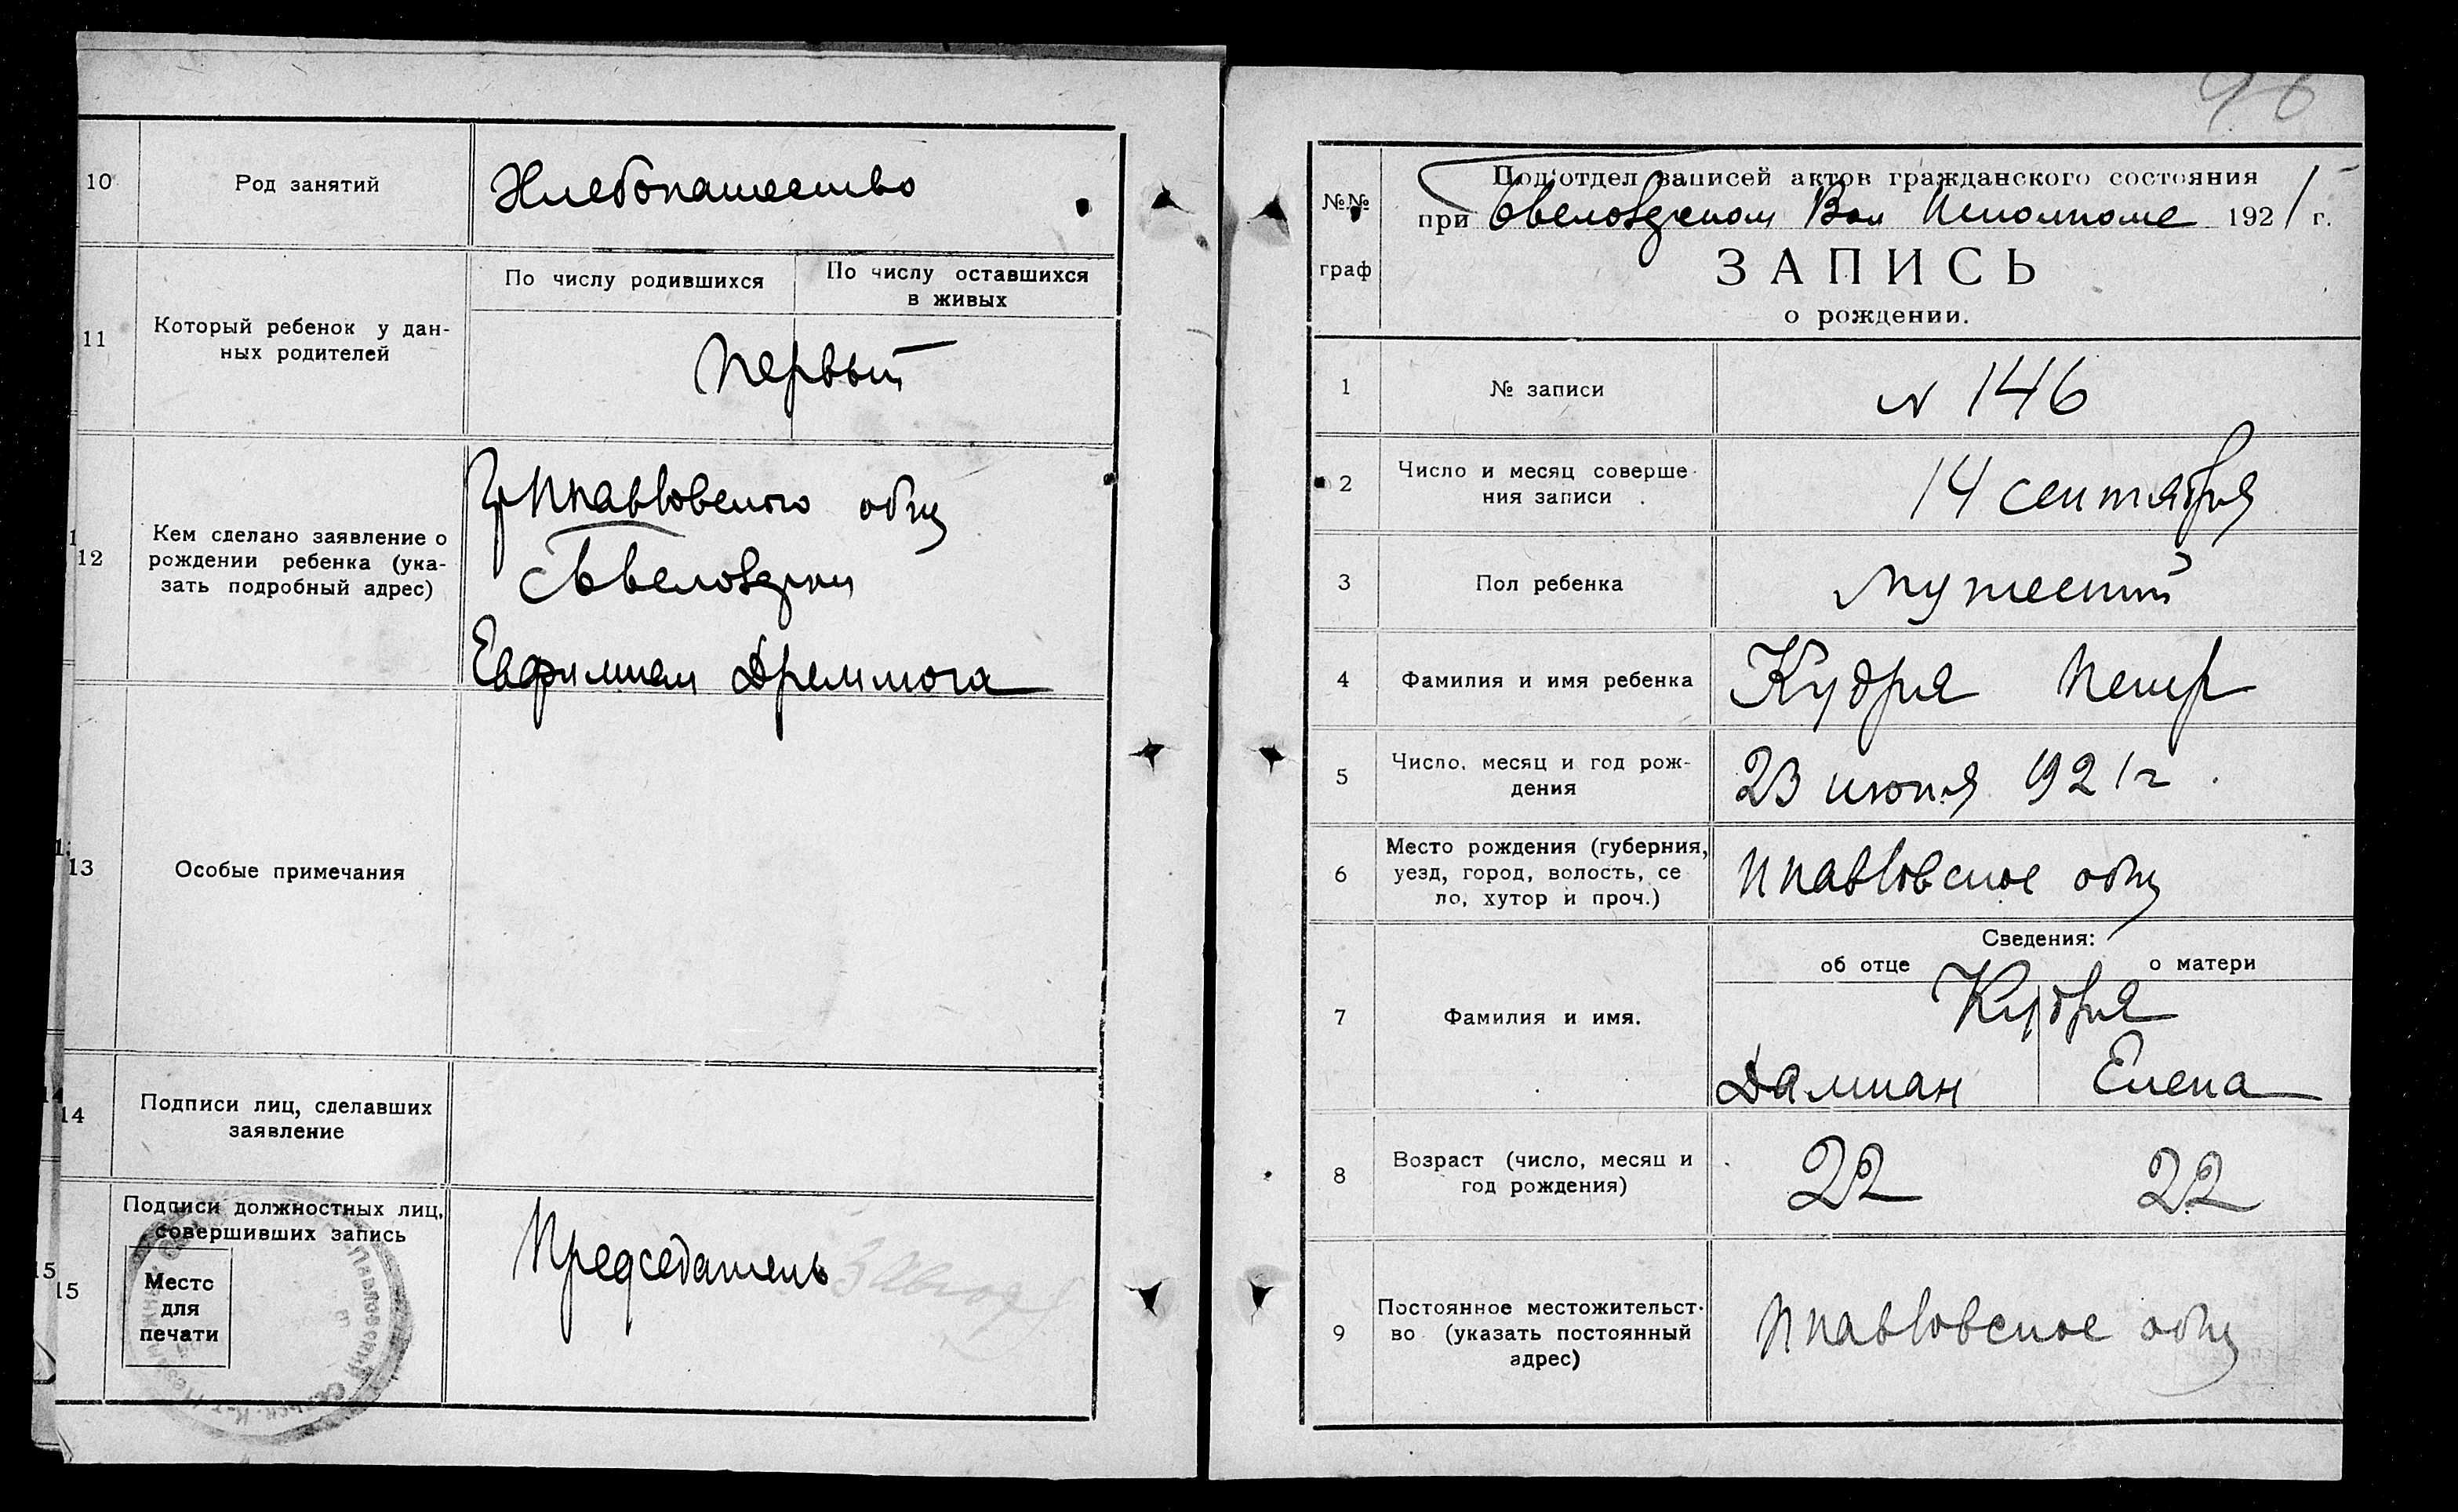 10
Род занятий
Хлебопашество
11
Который ребенок у дан-
ных родителей
По числу родившихся
По числу оставшихся
в живых
Первый
12
Кем сделано заявление о
рождении ребенка (ука-
зать подробный адрес)
Гр Ппавловского общ
Евфимием Дремлюга
13
Особые примечания
14
Подписи лиц, сделавших
заявление
15
Подписи должностных лиц,
совершивших запись
Место
для
печати
Председатель
96
№№
граф
Под'отдел записей актов гражданского состояния
при Вол Исполкоме 1921 г.
ЗАПИСЬ
о рождении.
1
№ записи
N 146
2
Число и месяц соверше-
ния записи
14 сентября
3
Пол ребенка
мужеский
4
Фамилия и имя ребенка
Кудря Петр
5
Число, месяц и год рож-
дения
23 июня 1921 г
6
Место рождения (губерния,
уезд, город, волость, се
ло, хутор и проч.)
Ппавловское общ
Сведения:
об отце
о матери
7
Фамилия и имя.
Кудря
Дамиан
Елена
8
Возраст (число, месяц и
год рождения)
22
22
9
Постоянное местожительст-
во (указать постоянный
адрес)
Ппавловское общ